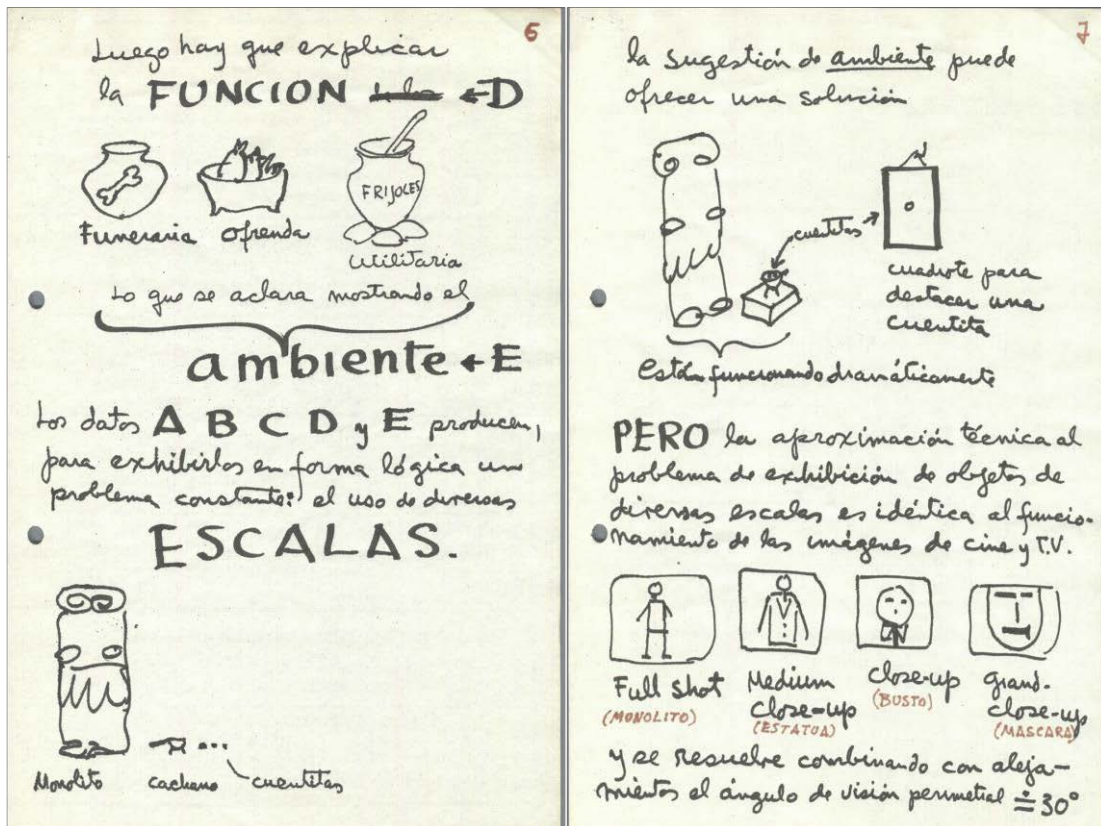 6
Luego hay que explicar
la FUNCION ←D
FRIJOLES
Funeraria ofrenda
utilitaria
Lo que se aclara mostrando el
ambiente ←E
Los datos A B C D y E producen,
para exhibirlos en forma lógica un
problema constante: el uso de diversas
ESCALAS.
Monolito cacharro cuentitas
7
la sugestión de ambiente puede
ofrecer una solución
cuentitas
cuadrote para
destacar una
cuentita
Están funcionando dramáticamente
PERO la aproximación técnica al
problema de exhibición de objetos de
diversas escalas es idéntica al funcio-
namiento de las imágenes de cine y T.V.
Full Shot Medium Close-up Close-up grand-Close-up
(MONOLITO) (ESTATUA) (BUSTO) (MASCARA)
y se resuelve combinando con aleja-
mientos el ángulo de visión perimetral ≑ 30°